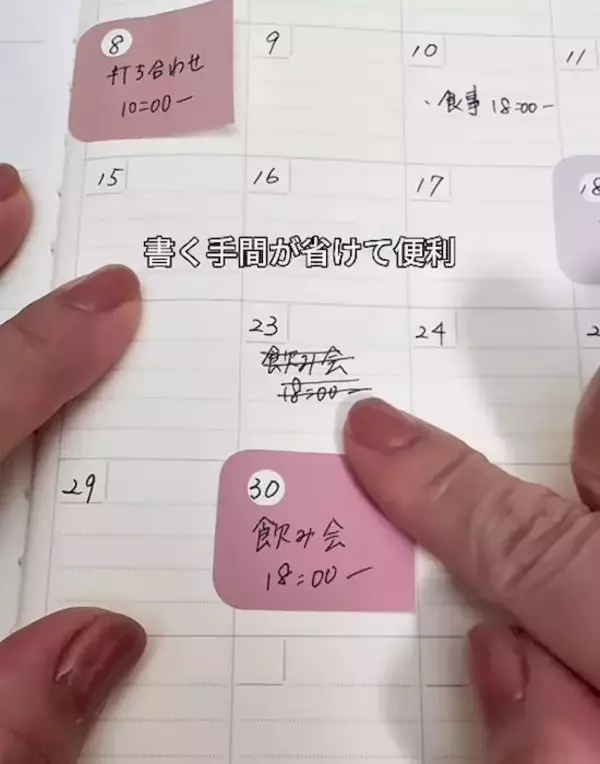 8
打ち合わせ
10:00ー
9
10
・食事 18:00ー
11
15
16
17
18
書く手間が省けて便利
23
飲み会
18:00ー
24
29
30
飲み会
18:00ー